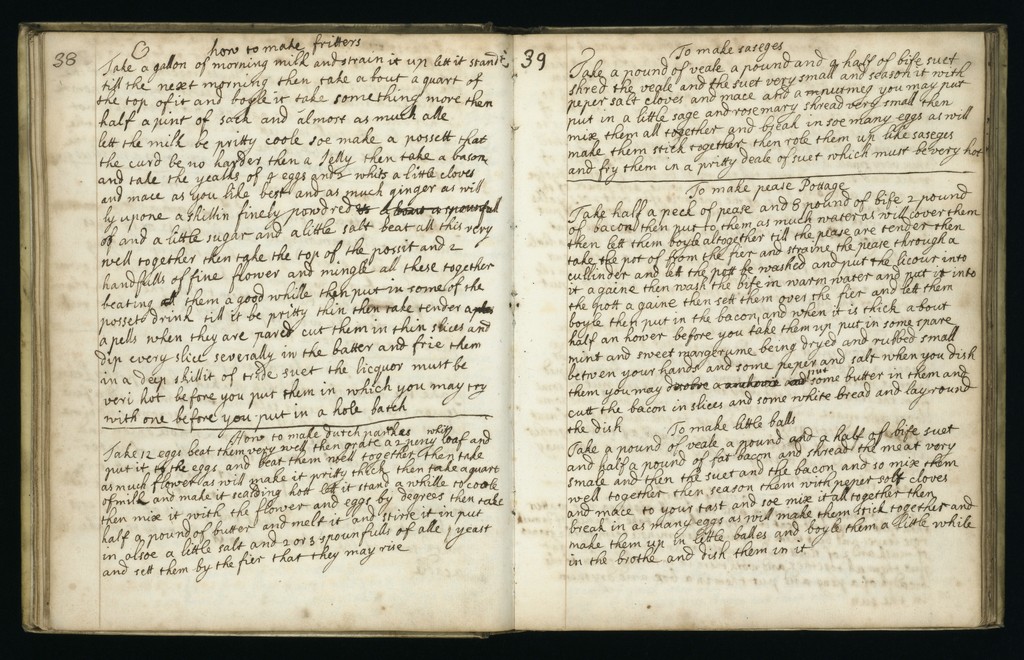 38
how to make fritters
Take a gallon of morning milk and strain it up lett it stand
till the next morning then take a bout a quart of
the top of it and boyle it take something more then
half a pint of sack and almost as much alle
lett the milk be pritty coole soe make a possett that
the curd be no harder then a Jelly then take a bason
and take the yealks of 4 eggs and 2 whits a little cloves
and mace as you like best and as much ginger as will
ly upone a shillin finely powdred a bout a spounfull
of and a little sugar and a little salt beat all this very
well together then take the top of the possit and 2
handfulls of fine flower and mingle all these together
beating them a good whille then put in some of the
possets drink till it be pritty thin then take tender
apells when they are pared cut them in thin slices and
dip every slice severally in the batter and frie them
in a deep skillit of tride suet the licquor must be
veri hot before you put them in which you may try
with one before you put in a hole batch
How to make dutch
Take 12 eggs beat them very well then grate a 2 peny whit loaf and
put it to the eggs and beat them well together then take
as much flower as will make it pritty thick then take a quart
of milk and make it scalding hott lett it stand a whille to coole
then mix it with the flower and eggs by degrees then take
half a pound of butter and melt it and stirk it in put
in alsoe a little salt and 2 or 3 spounfulls of alle yeast
and sett them by the fier that they may rise
39
To make saseges
Take a pound of veale a pound and a half of bife suet
shred the veale and the suet very small and season it with
peper salt cloves and mace and a nutmeg you may put
put in a little sage and rosemary shread very small then
mix them all together and break in soe many eggs as will
make them stick together then role them up like saseges
and fry them in a pritty deale of suet which must be very hot
To make pease Pottage
Take half a peck of pease and 8 pound of bife 2 pound
of bacon then put to them as much water as will cover them
then lett them boyle altogether till the pease are tender then
take the pot of from the fier and straine the pease through a
cullinder and lett the pott be washed and put the licour into
it againe then wash the bife in warm water and put it into
the pott a gaine then sett them over the fier and lett them
boyle then put in the bacon and when it is thick a bout
half an hower before you take them up put in some spare
mint and sweet margerume being dryed and rubbed small
betwen your hands and some peper and salt when you dish
them you may put some butter in them and
cutt the bacon in slices and some white bread and lay round
the dish
To make little balls
Take a pound of veale a pound and a half of bife suet
and half a pound of fat bacon and shread the meat very
smale and then the suet and the bacon and so mix them
well together then season them with peper salt cloves
and mace to your tast and soe mix it all together then
break in as many eggs as will make them stick together and
make them up in little balles and boyle them a little while
in the brothe and dish them in it